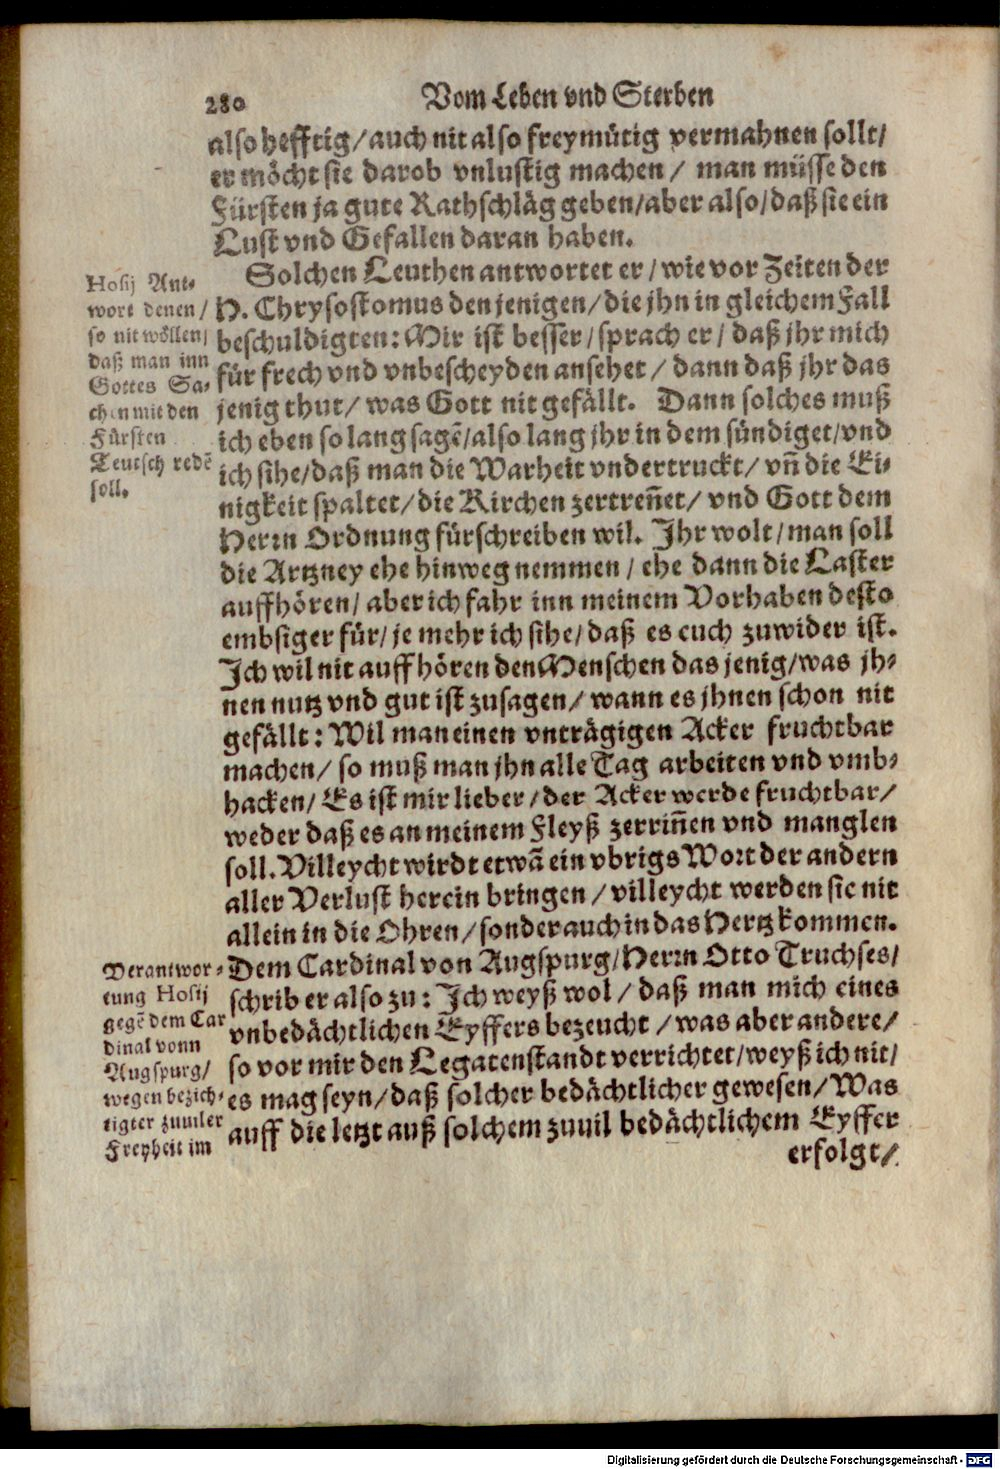 280 Vom Leben vnd Sterben
also hefftig/ auch nit also freymütig vermahnen sollt/
er möcht sie darob vnlustig machen/ man müsse den
Fürsten ja gute Rathschläg geben/ aber also/ daß sie ein
Lust vnd Gefallen daran haben.
Solchen Leuthen antwortet er/ wie vor Zeiten der
H. Chrysostomus den jenigen/ die jhn in gleichem Fall
beschuldigten: Mir ist besser/ sprach er/ daß jhr mich
für frech vnd vnbescheyden ansehet/ dann daß jhr das
jenig thut/ was Gott nit gefällt. Dann solches muß
ich eben so lang sagẽ/ also lang jhr in dem sündiget/ vnd
ich sihe/ daß man die Warheit vndertruckt/ vñ die Ei-
nigkeit spaltet/ die Kirchen zertreñet/ vnd Gott dem
Herrn Ordnung fürschreiben wil. Ihr wolt/ man soll
die Artzney ehe hinweg nemmen/ ehe dann die Laster
auffhören/ aber ich fahr inn meinem Vorhaben desto
embsiger für/ je mehr ich sihe/ daß es euch zuwider ist.
Ich wil nit auffhören den Menschen das jenig/ was jh-
nen nutz vnd gut ist zusagen/ wann es jhnen schon nit
gefällt: Wil man einen vnträgigen Acker fruchtbar
machen/ so muß man jhn alle Tag arbeiten vnd vmb-
hacken/ Es ist mir lieber/ der Acker werde fruchtbar/
weder daß es an meinem Fleyß zerriñen vnd manglen
soll. Villeycht wirdt etwã ein vbrigs Wort der andern
aller Verlust herein bringen/ villeycht werden sie nit
allein in die Ohren/ sonder auch in das Hertz kommen.
Dem Cardinal von Augspurg/ Herrn Otto Truchses/
schrib er also zu: Ich weyß wol/ daß man mich eines
vnbedächtlichen Eyffers bezeucht/ was aber andere/
so vor mir den Legatenstandt verrichtet/ weyß ich nit/
es mag seyn/ daß solcher bedächtlicher gewesen/ Was
auff die letzt auß solchem zuuil bedächtlichem Eyffer
erfolgt/
Hosij Ant-
wort denen/
so nit wöllen/
daß man inn
Gottes Sa-
chen mit den
Fürsten
Teutsch redẽ
soll.
Verantwor-
tung Hosij
gegẽ dem Car
dinal vonn
Augspurg/
wegen bezich-
tigter zuuiler
Freyheit im
Digitalisierung gefördert durch die Deutsche Forschungsgemeinschaft - DFG